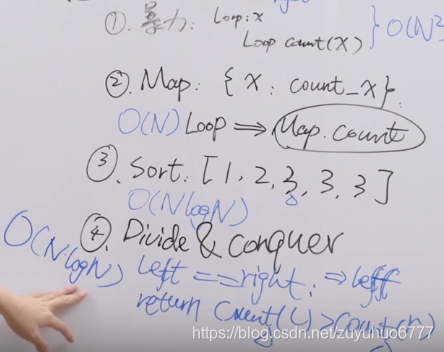 ①. 暴力: Loop: x
Loop count(x) } O(N²
②. Map: {x: count_x}.
O(N) Loop ⇒ Map.count
③. Sort: [1, 2, 3, 3, 3]
O(NlogN)
④. Divide & conquer
O(NlogN) left == right: ⇒ left
return count(L) > count(R)
https://blog.csdn.net/zuyuhuo6777